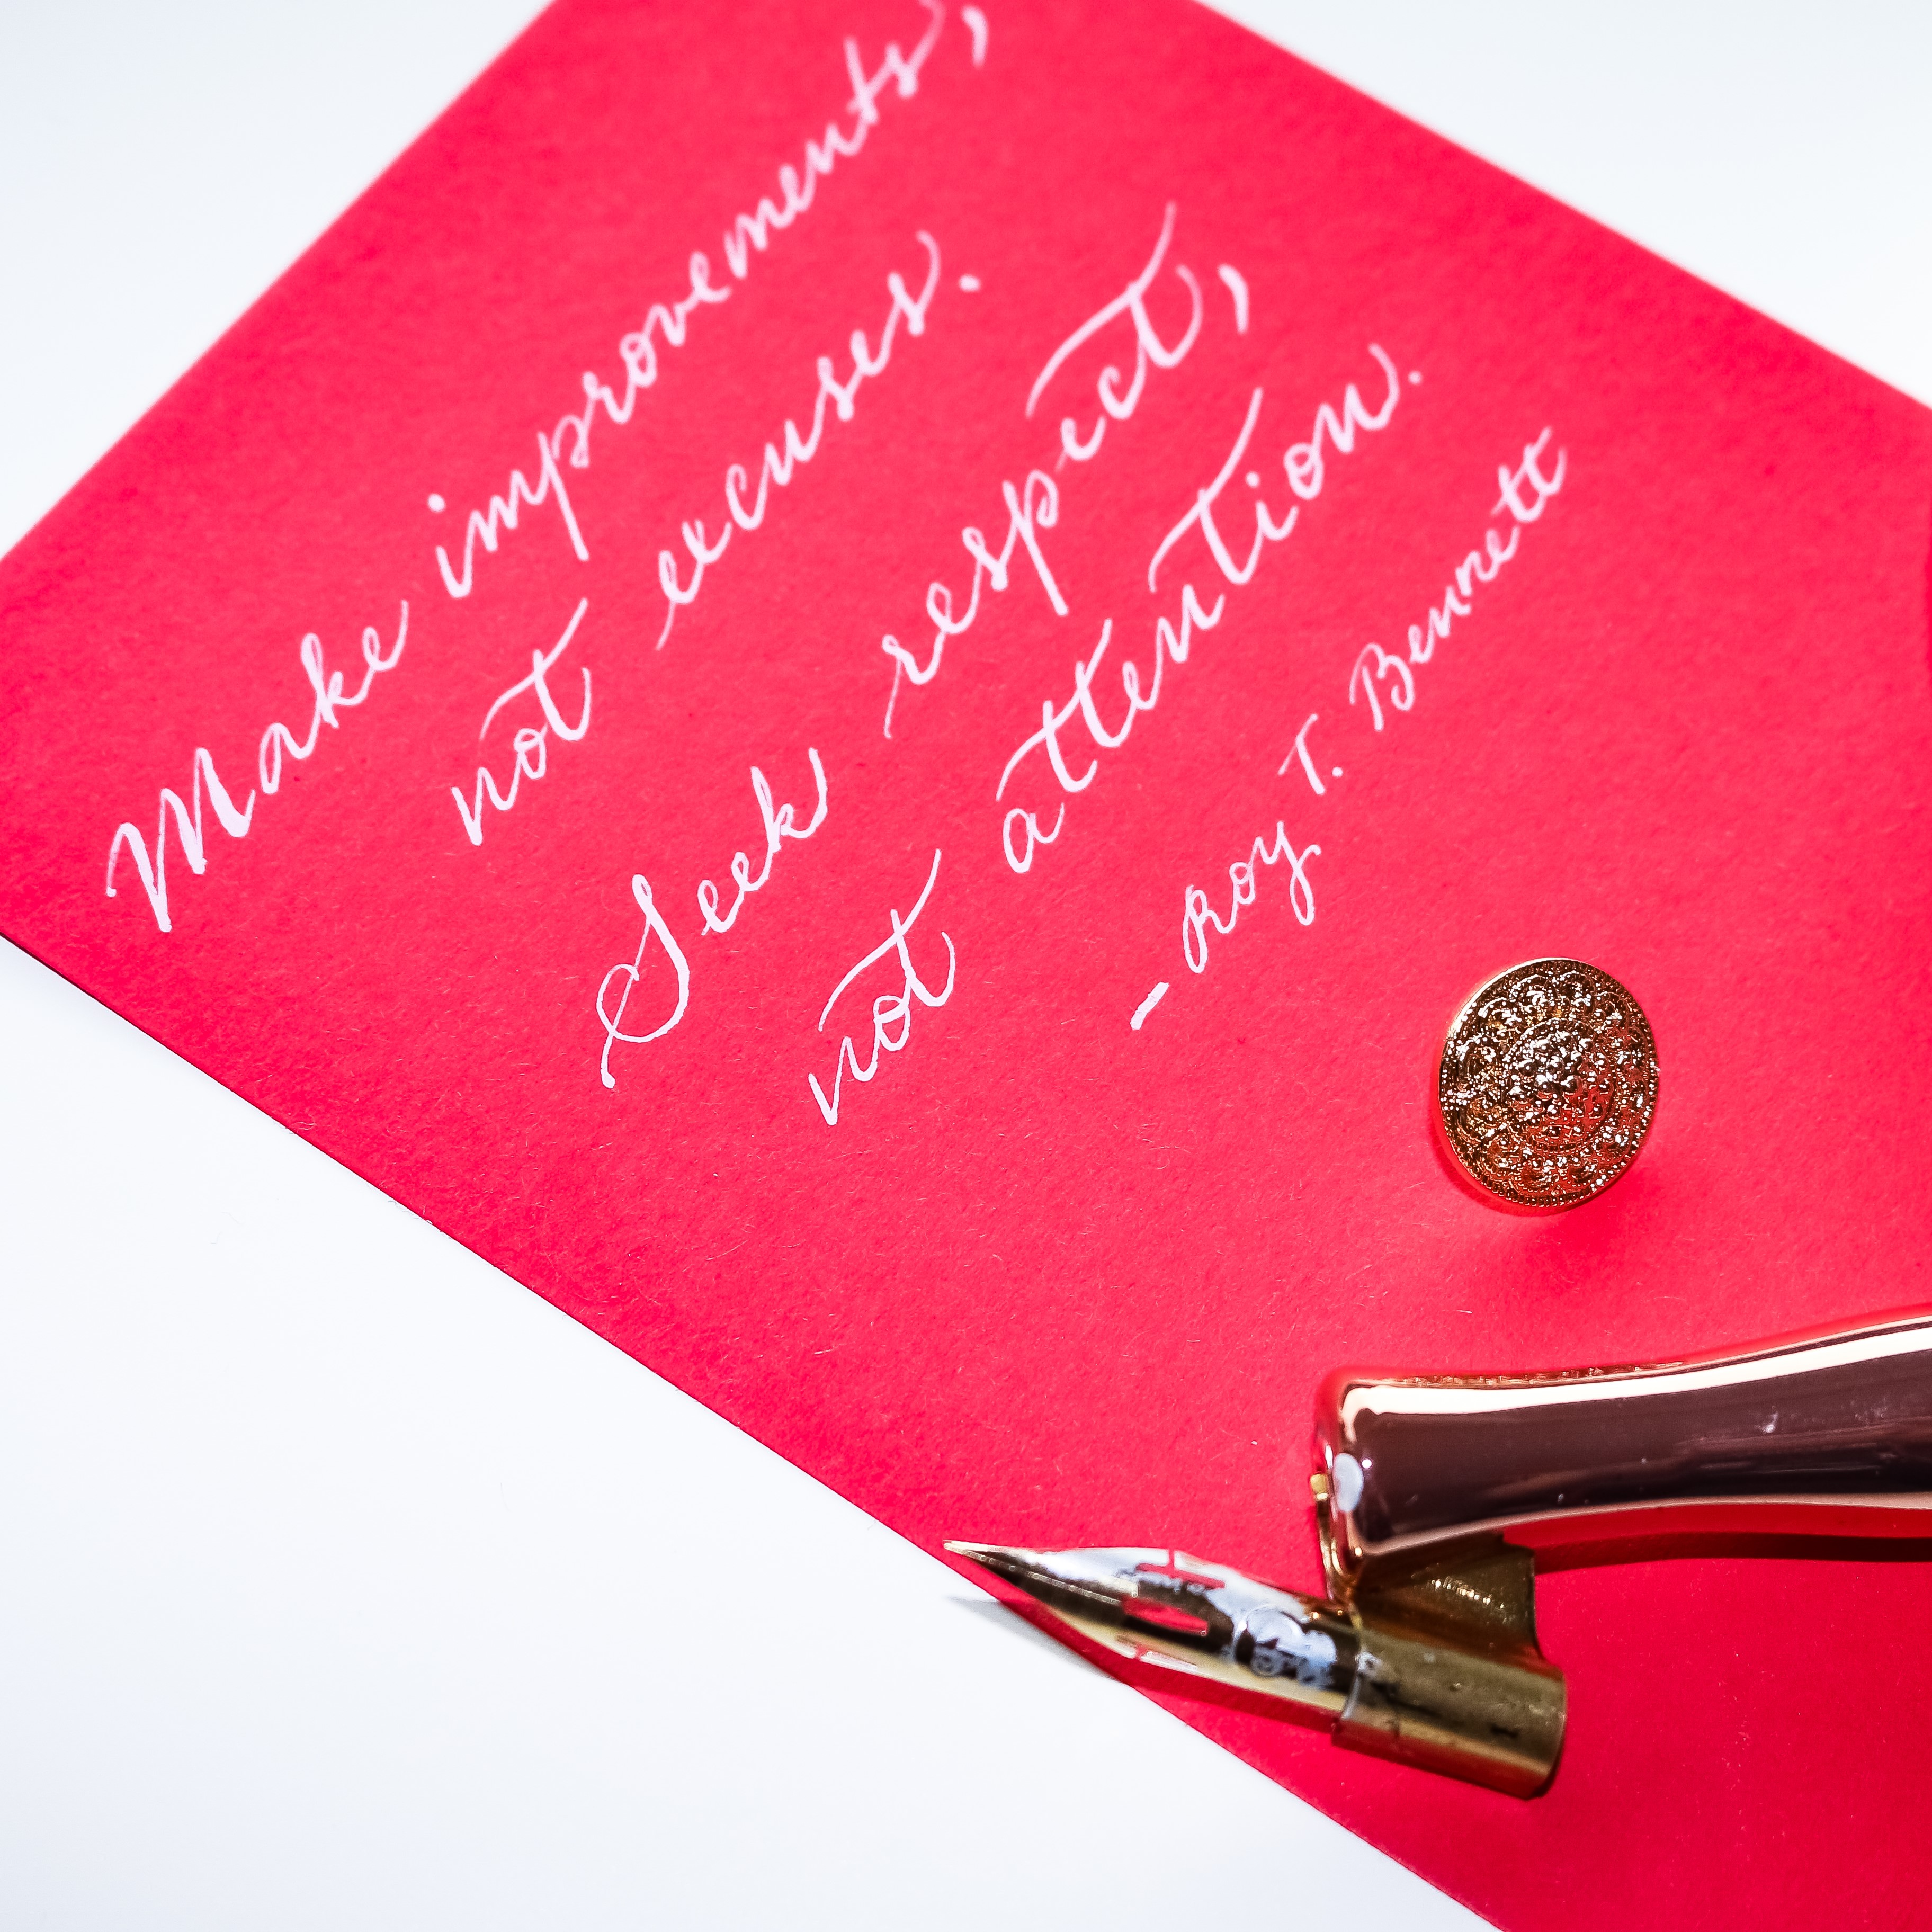 Make improvements,
not excuses.
Seek respect,
not attention.
- Roy T. Bennett